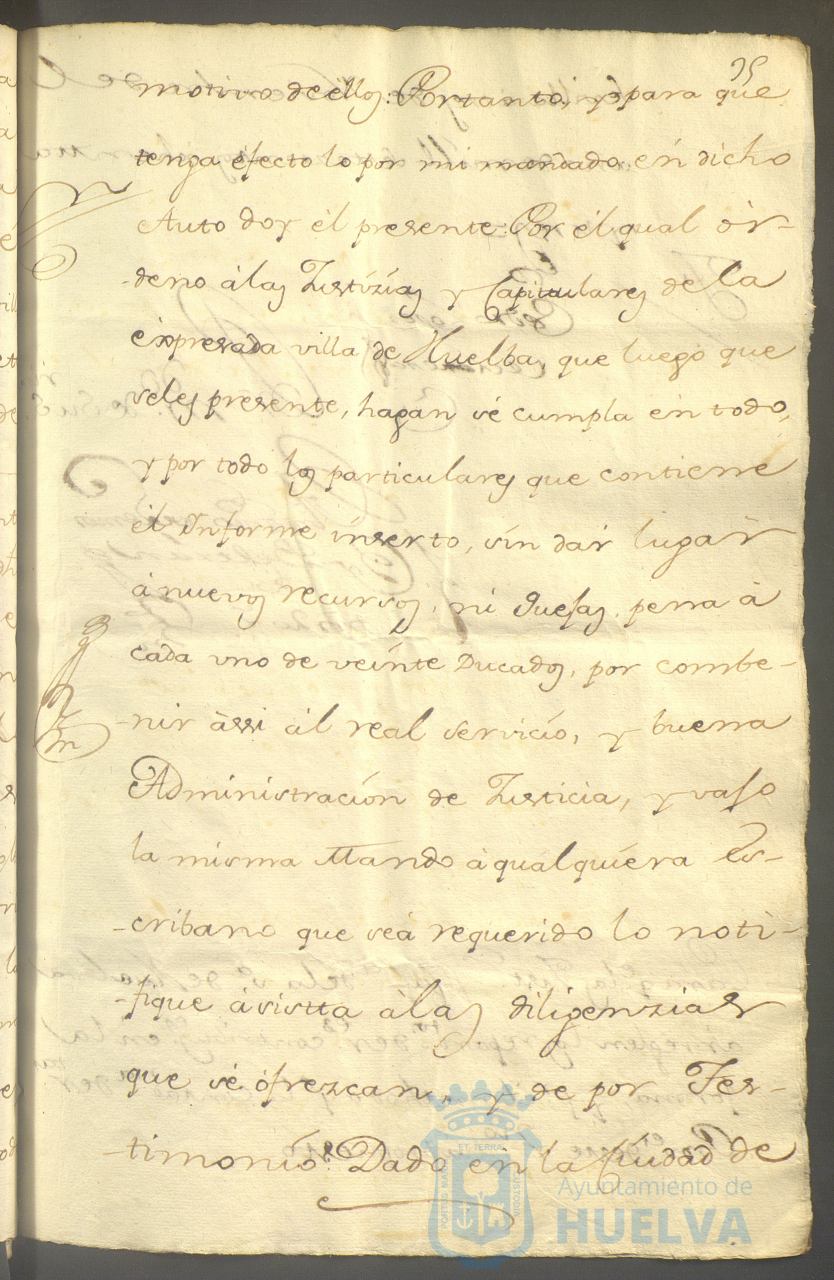 35
motivo de éllos: Portanto, y para que
tenga éfecto lo por mi mandado én dicho
Auto doy él presente: Por él qual ór-
deno álas Justizias y Capitulares de la
éxpresada villa de Huelba, que luego que
seles presente, hagan sé cumpla én todo,
y por todo los particulares que contiene
él Informe ínserto, sín dar lugar
á nuevos recursos, ni Quejas, pena á
cada uno de veinte Ducados, por combe-
-nir ássi ál real servicío, y buena
Administracíon de Justicia, y vajo
la misma Mando á qualquíera Es-
-cribano que seá requerido lo noti-
-fique ásistta álas diligenzias
que sé ófrezcan, y de por Tes-
-timonío. Dado en la Ciudad de
Ayuntamiento de
HUELVA